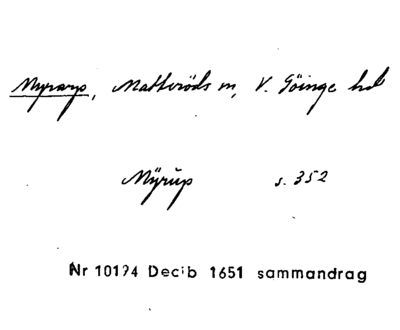 Myrarp, Matteröds sn, V. Göinge hd
Mÿrup s. 352
Nr 10124 Decib 1651 sammandrag